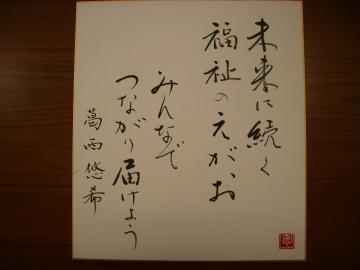 未来に続く
福祉のえがお
みんなで
つながり届けよう
葛西悠希